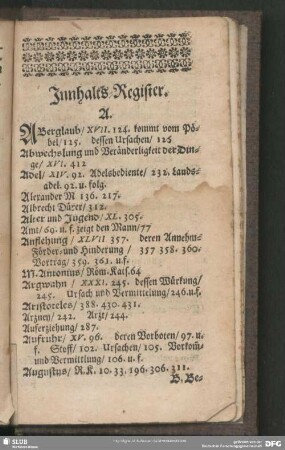 Innhalts-Register.
A.
ABerglaub/ XVII. 124. kommt vom Pö-
bel/ 125. dessen Ursachen/ 126
Abwechslung und Veränderligkeit der Din-
ge/ XVI. 412
Adel/ XIV. 92. Adelsbediente/ 232. Lands-
adel. 92. u. folg.
Alexander M 136. 217.
Albrecht Dürer/ 312.
Alter und Jugend/ XL. 305.
Amt/ 69. u. f. zeigt den Mann/ 77
XLVII 357. deren
Förder- und Hinderung/ 357 358. 360.
Vortrag/ 359. 361. u. f.
M. Antonius/ Röm. Kais. 64
Argwahn/ XXXI. 245. dessen Würkung/
245. Ursach und Vermittlung/ 246. u. f.
Aristoteles/ 388. 430. 431.
Arzney/ 242. Arzt/ 244.
Auferziehung/ 287.
Aufruhr/ XV. 96. deren Vorboten/ 97. u.
f. Stoff/ 102. Ursachen/ 105. Vorkom-
und Vermittlung/ 106. u. f.
Augustus/ R. K. 10. 33. 196. 306. 311.
B. Be-
SLUB
DFG